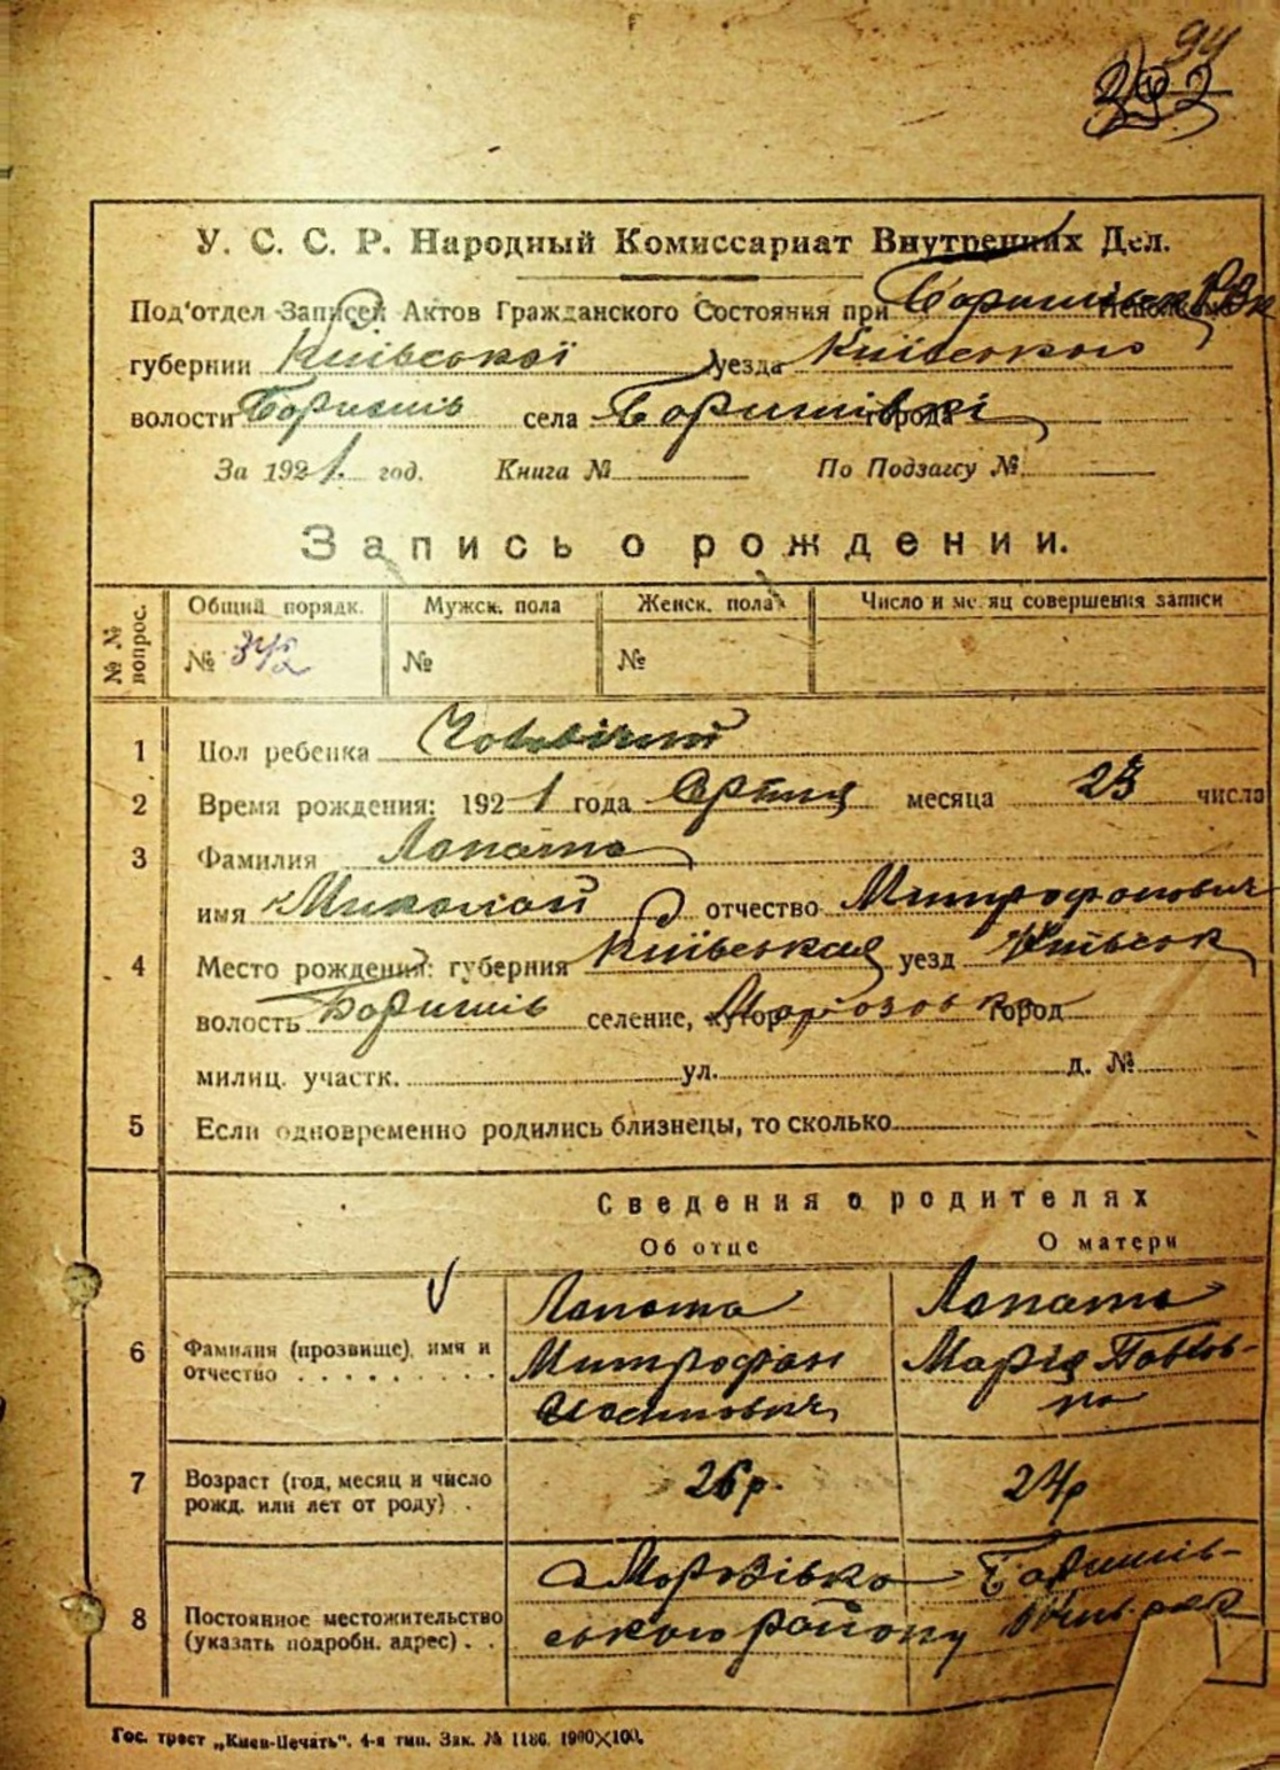 94
392
У. С. С. Р. Народный Комиссариат Внутренних Дел.
Под'отдел Записей Актов Гражданского Состояния при
губернии Київської уезда Київського
волости Боришпів села Боришпівкі города
За 1921. год. Книга № По Подзагсу №
Запись о рождении.
№ № вопрос.
Общий порядк. Мужск. пола Женск. пола Число и месяц совершения записи
№ 342 № №
1 Пол ребенка Чоловічий
2 Время рождения: 1921 года месяца 23 числа
3 Фамилия Лопата
имя Миколай отчество Митрофонович
4 Место рождения: губерния Київськая уезд Київськ
волость Боришпів селение, хутор город
милиц. участк. ул. д. №
5 Если одновременно родились близнецы, то сколько
Сведения о родителях
Об отце О матери
6 Фамилия (прозвище), имя и отчество
Лопата Лопата
Митрофан Марія Павлов-
на
7 Возраст (год, месяц и число рожд. или лет от роду) . 26 р. 24 р
8 Постоянное местожительство (указать подробн. адрес) . .
Морозівка Боришпів-
ського району
Гос. трест „Киев-Печать". 4-я тип. Зак. № 1186. 1900×100.